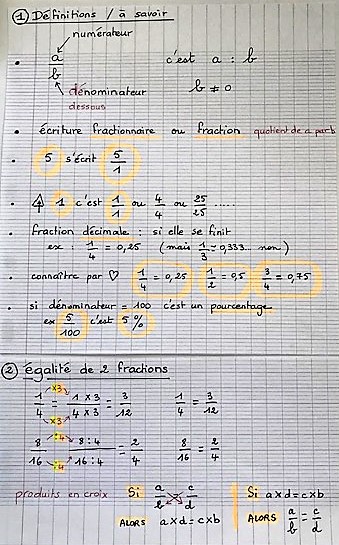 ① Définitions / à savoir
numérateur
a/b c'est a : b
dénominateur b ≠ 0
dessous
• écriture fractionnaire ou fraction quotient de a par b
• 5 s'écrit 5/1
• 1 c'est 1/1 ou 4/4 ou 25/25 .....
• fraction décimale : si elle se finit
ex : 1/4 = 0,25 (mais 1/3 = 0,333.. non)
• connaître par ♡ 1/4 = 0,25 1/2 = 0,5 3/4 = 0,75
• si dénominateur = 100 c'est un pourcentage
ex 5/100 c'est 5%
② égalité de 2 fractions
×3
1/4 = 1 × 3/4 × 3 = 3/12 1/4 = 3/12
×3
:4
8/16 = 8 : 4/16 : 4 = 2/4 8/16 = 2/4
:4
produits en croix Si a/b = c/d Si a×d = c×b
ALORS a×d = c×b ALORS a/b = c/d